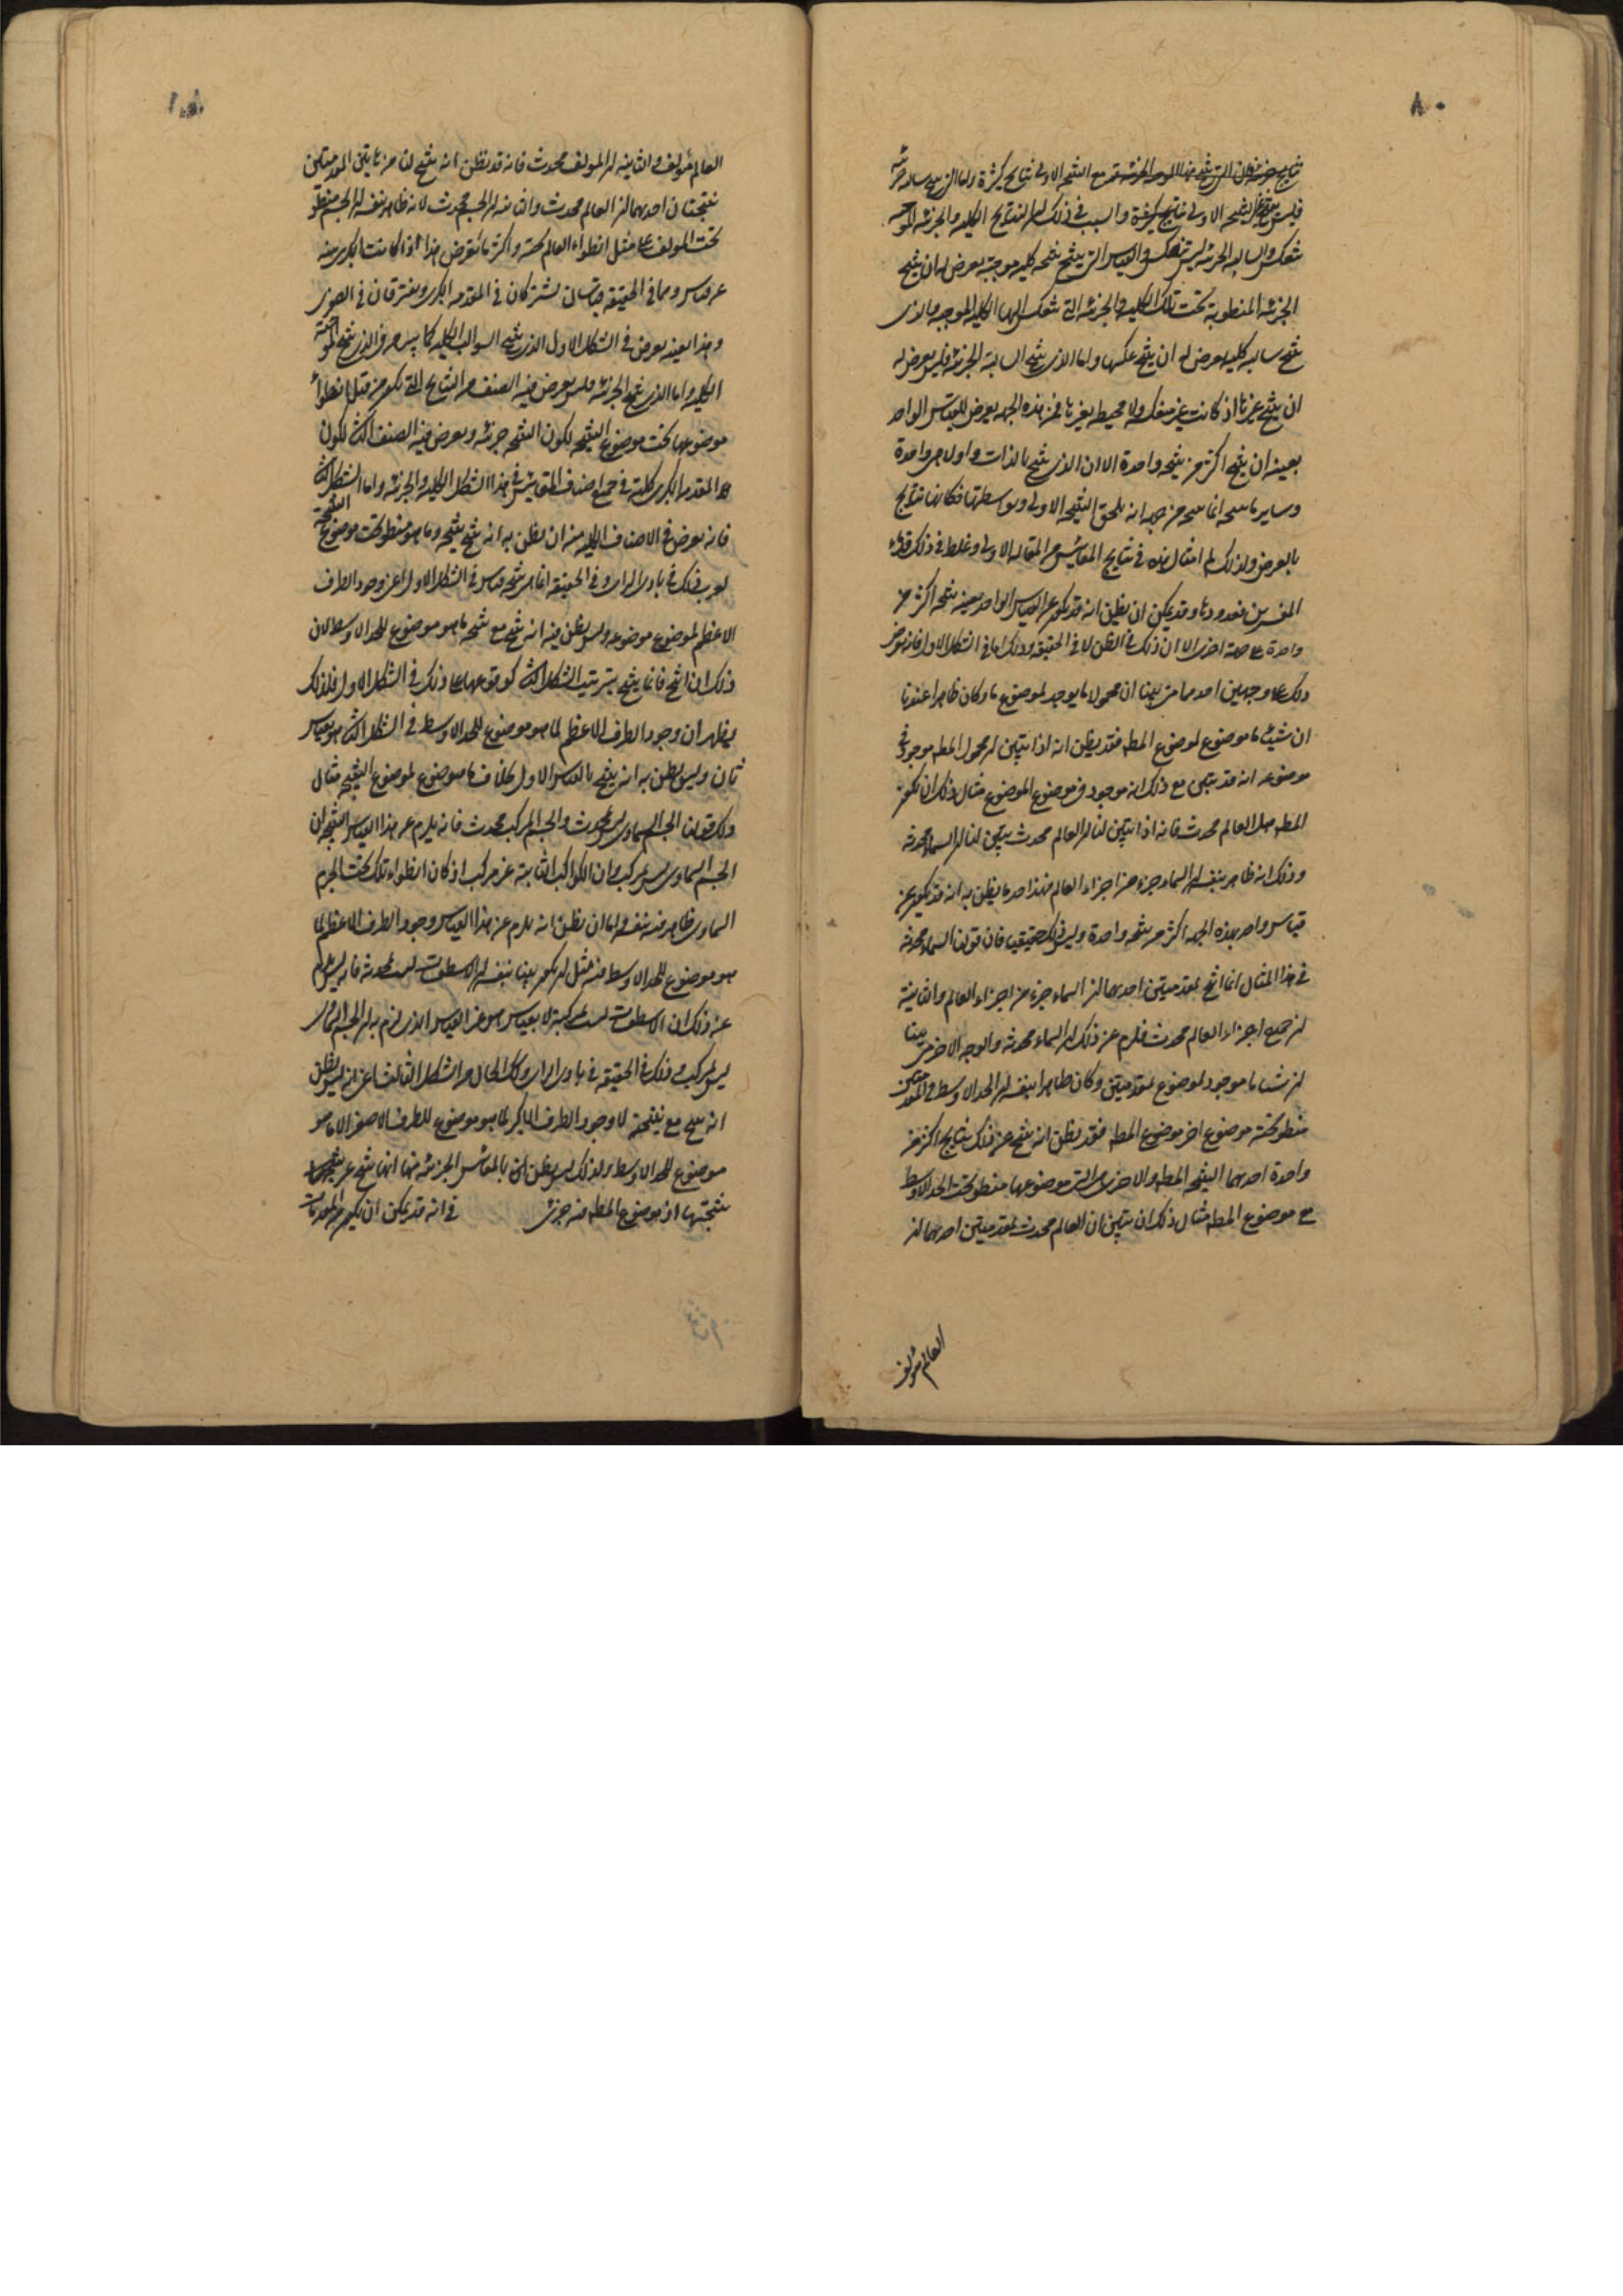 ٨٠
نتايج جزئية فان التي تنتج منها الموجبة الجزئية تنتج مع النتيجة الاولى نتايج كثيرة واما التي تنتج سالبة جزئية
فليس تنتج غير النتيجة الاولى نتايج كثيرة والسبب في ذلك ان النتايج الكلية والجزئية الموجبة
تنعكس والسالبة الجزئية ليس تنعكس والقياس الذي ينتج نتيجة كلية موجبة يعرض له ان ينتج
الجزئية المنطوية تحت تلك الكلية والجزئية التي تنعكس اليها الكلية الموجبة والذي
ينتج سالبة كلية يعرض له ان ينتج عكسها واما الذي ينتج السالبة الجزئية فليس يعرض له
ان ينتج غيرها اذ كانت غير منعكسة ولا محيطة بغيرها فمن هذه الجهة يعرض للقياس الواحد
بعينه ان ينتج اكثر من نتيجة واحدة الا ان الذي ينتج بالذات واولا هي واحدة
وساير ما ينتج انما ينتج من جهة انه يلحق النتيجة الاولى وبوساطتها فكانها نتايج
بالعرض ولذلك لم امثال هذه في نتايج المقائيس من المقالة الاولى وغلط في ذلك قدماء
المفسرين فعدودها وقد يمكن ان يظن انه قد يكون عن القياس الواحد بعينه نتيجة اكثر من
واحدة على جهة اخرى الا ان ذلك في الظن لا في الحقيقة وذلك اما في الشكل الاول فانه يعرض
ذلك على وجهين احدهما متى تبينا ان محمولا ما يوجد لموضوع ما وكان ظاهرا عندنا
ان شيئا ما موضوع لموضوع المط فقد يظن انه اذا تبين ان محمول المط موجود في
موضوعه انه قد تبين مع ذلك انه موجود في موضوع الموضوع مثال ذلك ان يكون
المط هل العالم محدث فانه اذا تبين لنا ان العالم محدث تبين لنا ان السماء محدثة
وذلك انه ظاهر بنفسه ان السماء جزء من اجزاء العالم فهذا احد ما يظن به انه قد يكون عن
قياس واحد بهذه الجهة اكثر من نتيجة واحدة وليس ذلك حقيقيا فان قولنا السماء محدثة
في هذا المثال انما انتج لمقدمتين احدهما ان السماء جزء من اجزاء العالم والثانية
ان جميع اجزاء العالم محدث فلزم عن ذلك ان السماء محدثة والوجه الاخر متى بينا
ان شيئا ما موجود لموضوع بمقدمتين وكان ظاهرا بنفسه ان الحد الاوسط في المقدمتين
منطو تحته موضوع اخر موضوع المط فقد يظن انه ينتج عن ذلك نتايج اكثر من
واحدة احدهما النتيجة المط والاخرى التي موضوعها منطو تحت الحد الاوسط
مع موضوع المط مثال ذلك ان نبين ان العالم محدث بمقدمتين احدهما ان
العالم مؤلف
٨١
العالم مؤلف والثانية ان المؤلف محدث فانه قد يظن انه ينتج لنا من هاتين المقدمتين
نتيجتان احدهما ان العالم محدث والثانية ان الجسم محدث لانه ظاهر بنفسه ان الجسم منطو
تحت المؤلف على مثل انطواء العالم تحته واكثر ما يعرض هذا اذا كانت الكبرى بينة
عن قياس وهما في الحقيقة قياسان يشتركان في المقدمة الكبرى ويفترقان في الصغرى
وهذا بعينه يعرض في الشكل الاول الذي ينتج السوالب الكلية كما يعرض في الذي ينتج الموجبة
الكلية واما الذي ينتج الجزئية فليس يعرض فيه الصنف من النتايج التي يكون من قبل انطواء
موضوعها تحت موضوع النتيجة لكون النتيجة جزئية ويعرض فيه الصنف الثاني لكون
المقدمة الكبرى كلية في جميع اصناف المقائيس في هذا الشكل الكلية والجزئية واما الشكل الثاني
فانه يعرض في الاصناف الكلية منه ان يظن به انه ينتج نتيجة وما هو منطو تحت موضوع النتيجة
لقرب ذلك في بادي الراي وفي الحقيقة انما هو نتيجة قياس في الشكل الاول اعني وجود الطرف
الاعظم لموضوع موضوعه وليس يظن فيه انه ينتج مع نتيجة ما هو موضوع للحد الاوسط لان
ذلك ان انتج فانما ينتج بترتيب الشكل الثاني كوقوعها على ذلك في الشكل الاول فلذلك
يظهر ان وجود الطرف الاعظم لما هو موضوع للحد الاوسط في الشكل الثاني هو بقياس
ثان وليس يظن به انه ينتج بالقياس الاول بخلاف ما هو موضوع لموضوع النتيجة مثال
ذلك قولنا الجسم السماوي ليس بمحدث والجسم المركب محدث فانه يلزم عن هذا القياس النتيجة ان
الجسم السماوي ليس بمركب وان الكواكب الثابتة غير مركب اذ كان انطواء تلك تحت الجرم
السماوي ظاهر فيه بنفسه واما ان يظن انه يلزم عن هذا القياس وجود الطرف الاعظم لما
هو موضوع للحد الاوسط منه مثل ان يكون بينا بنفسه ان الاسطقسات ليست محدثة فانه ليس يلزم
عن ذلك ان الاسطقسات ليست مركبة الا بقياس هو غير القياس الذي لزم به ان الجسم السماوي
ليس بمركب وذلك في الحقيقة في بادي الراي وكك الحال في الشكل الثالث اعني انه ليس يظن
انه ينتج مع نتيجته لا وجود الطرف الاكبر لما هو موضوع للطرف الاصغر الا ما هو
موضوع للحد الاوسط ولذلك ليس يظن ان بالمقائيس الجزئية منها انها تنتج غير نتيجتها
نتيجتها اذ موضوع المط منه جزئي في انه قد يمكن ان يكون من المقدمات